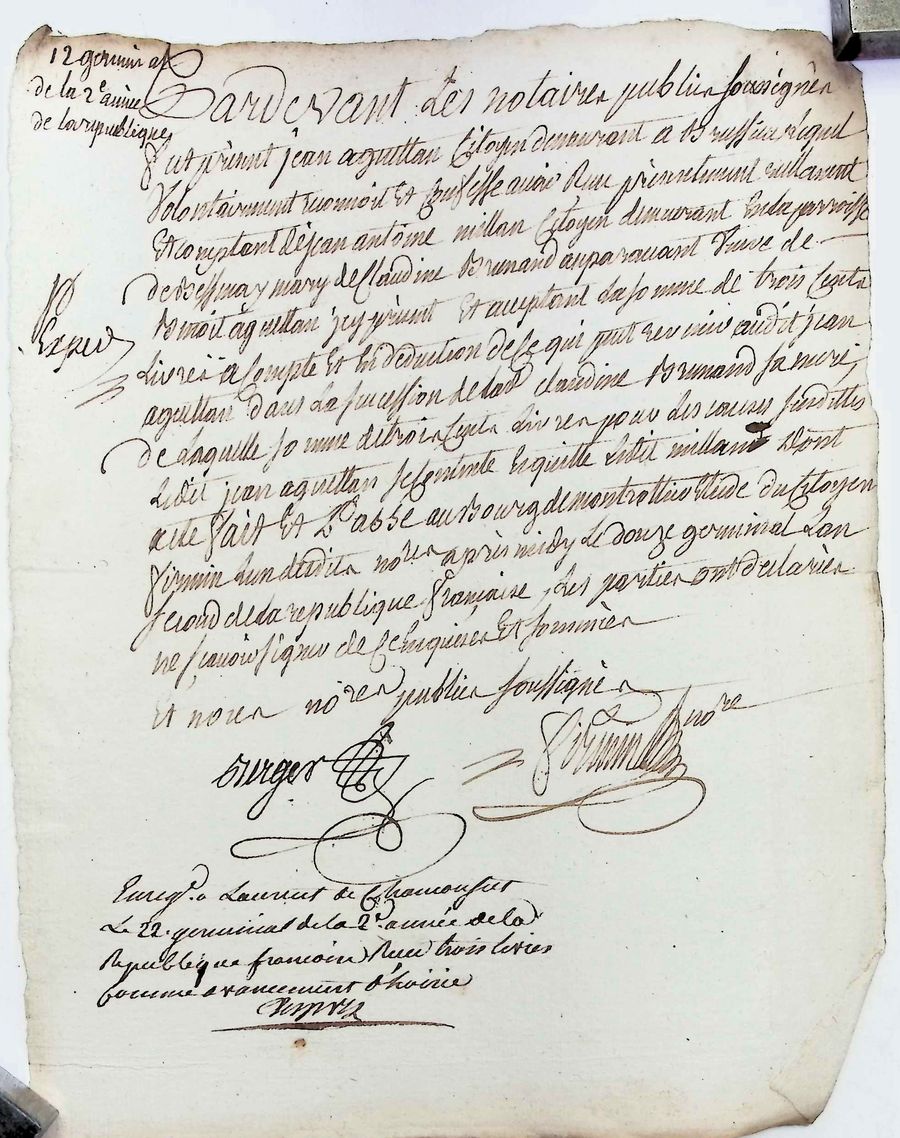 12 germinal
de la 2e année
de la republique
Pardevant Les notaires publics soussignés
fut présent jean aguettan Citoyen demeurant a Brussieu lequel
Volontairement reconnoit Et Confesse avoir Reçu présentement réellement
Et comptant de jean antoine millan Citoyen demeurant En la parroisse
de Bessenay mary de Claudine Brunand auparavant veuve de
Benoit aguettan icy présent Et acceptant La somme de trois Cents
Expéd
Livres a Compte Et En déduction de Ce qui peut revenir audit jean
aguettan dans La succession de lad Claudine Brunand sa mere,
de Laquelle somme de trois Cents Livres pour les causes susdittes
Ledit jean aguettan se Contente En quitte Ledit millan Dont
acte fait Et passé au Bourg de montrottier Etude du Citoyen
firmin L'un desdits nores après midy Le douze germinal L'an
second de La republique française, Les parties ont déclarées
ne sçavoir signer de Ce Enquises Et sommées
Et nous nores publics soussignés
Berger
firmin nore
Enregt a Laurent de Chamousset
Le 22 germinal de la 2e année de la
Republique francoise Reçu trois livres
Comme avancement d'hoirie